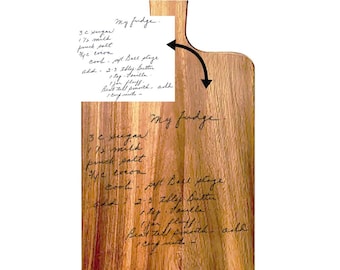 My fudge
3 C sugar
1 1/2 milk
pinch salt
3/4 C cocoa
cook - soft Ball stage
add - 2-3 tbly butter
1 tsp Vanilla
1 jar fluff
Beat till smooth - add
1 cup nuts -
My fudge
3 C sugar
1 1/2 milk
pinch salt
3/4 C cocoa
cook - soft Ball stage
add - 2-3 tbly butter
1 tsp Vanilla
1 jar fluff
Beat till smooth - add
1 cup nuts -